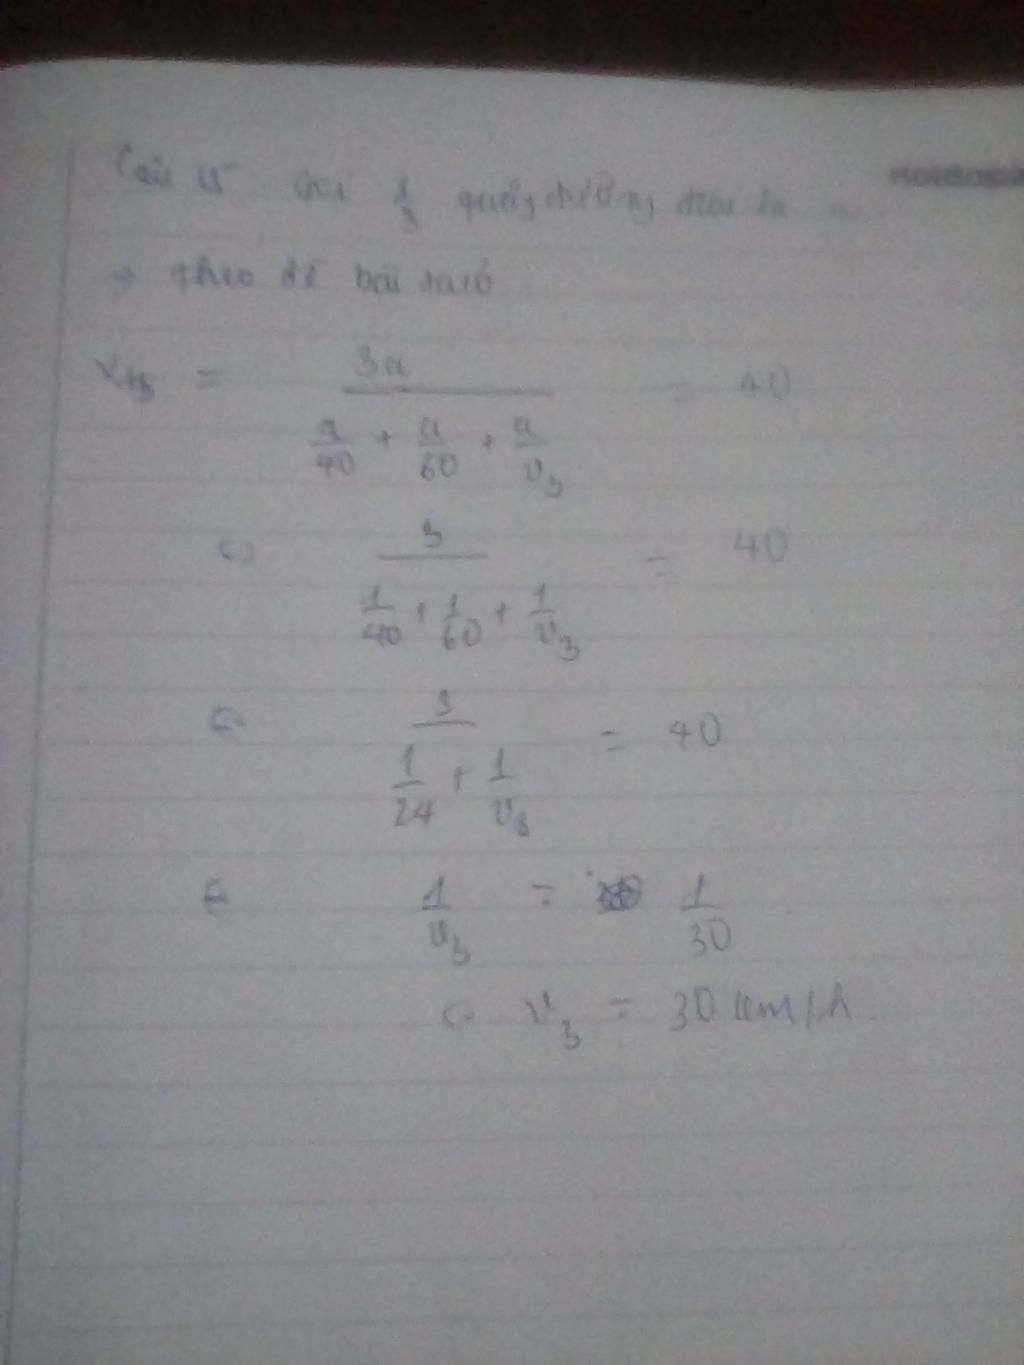 Câu 15 Gọi 1/3 quãng đường đầu là a
→ theo đề bài ta có
Vtb = 3a / (a/40 + a/60 + a/v3) = 40
<=> 3 / (1/40 + 1/60 + 1/v3) = 40
<=> 3 / (1/24 + 1/v3) = 40
<=> 1/v3 = 1/30
<=> v3 = 30 km/h.